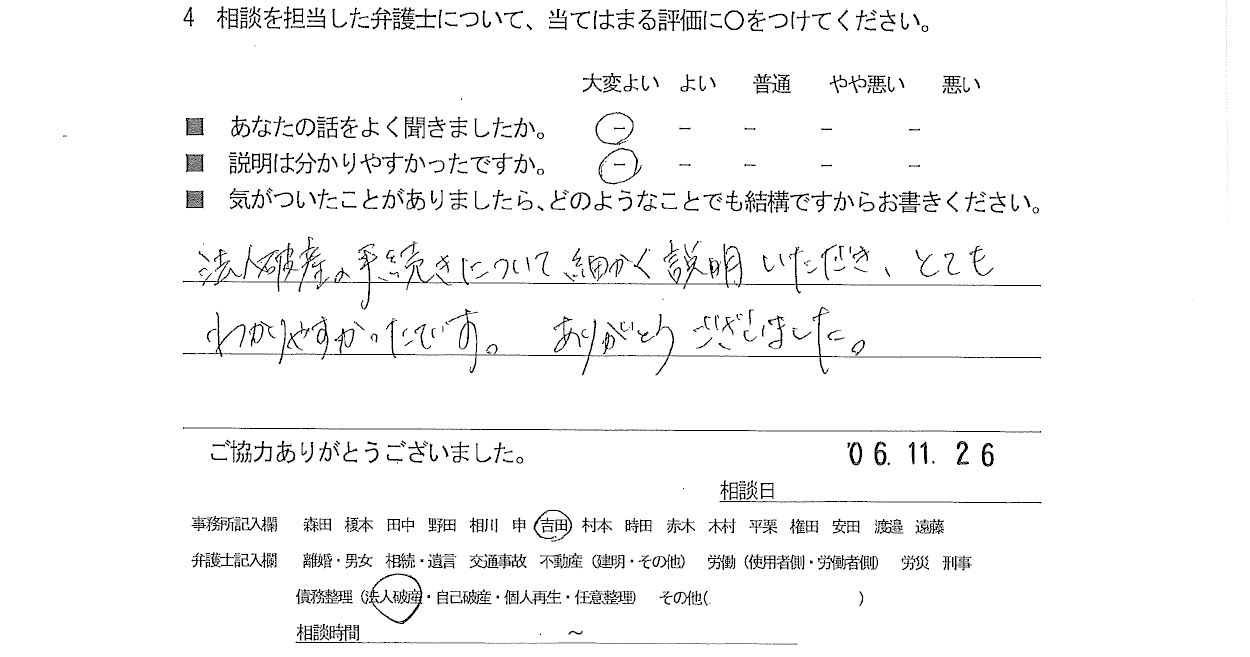 4 相談を担当した弁護士について、当てはまる評価に〇をつけてください。
大変よい よい 普通 やや悪い 悪い
■ あなたの話をよく聞きましたか。 － － － － －
■ 説明は分かりやすかったですか。 － － － － －
■ 気がついたことがありましたら、どのようなことでも結構ですからお書きください。
法人破産の手続きについて細かく説明いただき、とても
わかりやすかったです。 ありがとうございました。
ご協力ありがとうございました。 '06.11.26
相談日
事務所記入欄 森田 榎本 田中 野田 相川 申 吉田 村本 時田 赤木 木村 平栗 権田 安田 渡邉 遠藤
弁護士記入欄 離婚・男女 相続・遺言 交通事故 不動産（建明・その他） 労働（使用者側・労働者側） 労災 刑事
債務整理（法人破産・自己破産・個人再生・任意整理） その他( )
相談時間 ～